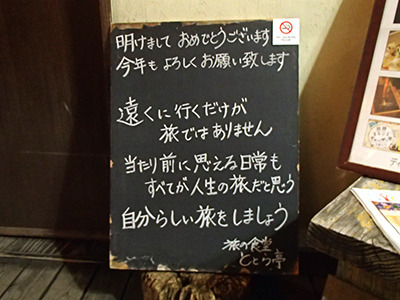 明けまして おめでとうございます
今年も よろしくお願い致します
遠くに行くだけが
旅ではありません
当たり前に思える日常も
すべてが人生の旅だと思う
自分らしい旅をしましょう
旅の食堂
ととら亭